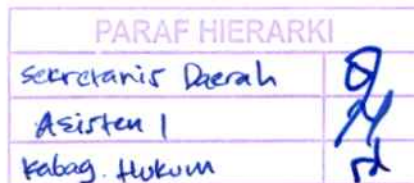 PARAF HIERARKI
Sekretaris Daerah
Asisten 1
Kabag. Hukum